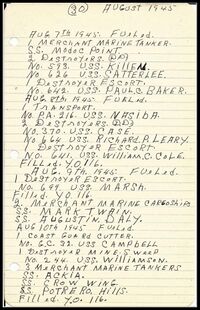 (30) AUGUST 1945
AUG 7TH 1945 FUELED.
1 MERCHANT MARINE TANKER.
SS. MODOC POINT
2 DESTROYERS. (DD)
No. 593. USS. KILLEN.
No. 626. USS. SATTERLEE.
1 DESTROYER ESCORT.
No. 642. USS. PAUL G. BAKER.
AUG 8TH 1945. FUELED.
1 TRANSPORT.
No. PA. 216. USS. NASIBA.
2 DESTROYERS. (DD)
No. 370. USS. CASE.
No. 664. USS. RICHARD P. LEARY.
1 DESTROYER ESCORT.
No. 641. USS. WILLIAM C. COLE.
FILLED. Y.O. 116.
AUG. 9TH 1945. FUELED.
1 DESTROYER ESCORT.
No. 699. USS. MARSH.
FILLED. Y.O. 116
2 MERCHANT MARINE CARGOSHIPS
SS. MARK TWAIN.
SS. AUGUSTIN. DALY.
AUG 10TH 1945 FUELED.
1 COAST GUARD CUTTER.
No. G.C. 32. USS CAMPBELL
1 DESTROYER MINE SWEEP
No 244. USS. WILLIAMSON.
3 MERCHANT MARINE TANKERS
SS. ACKIA.
SS. CROW WING.
SS. POTRERO. HILLS.
FILLED. Y.O. 116.